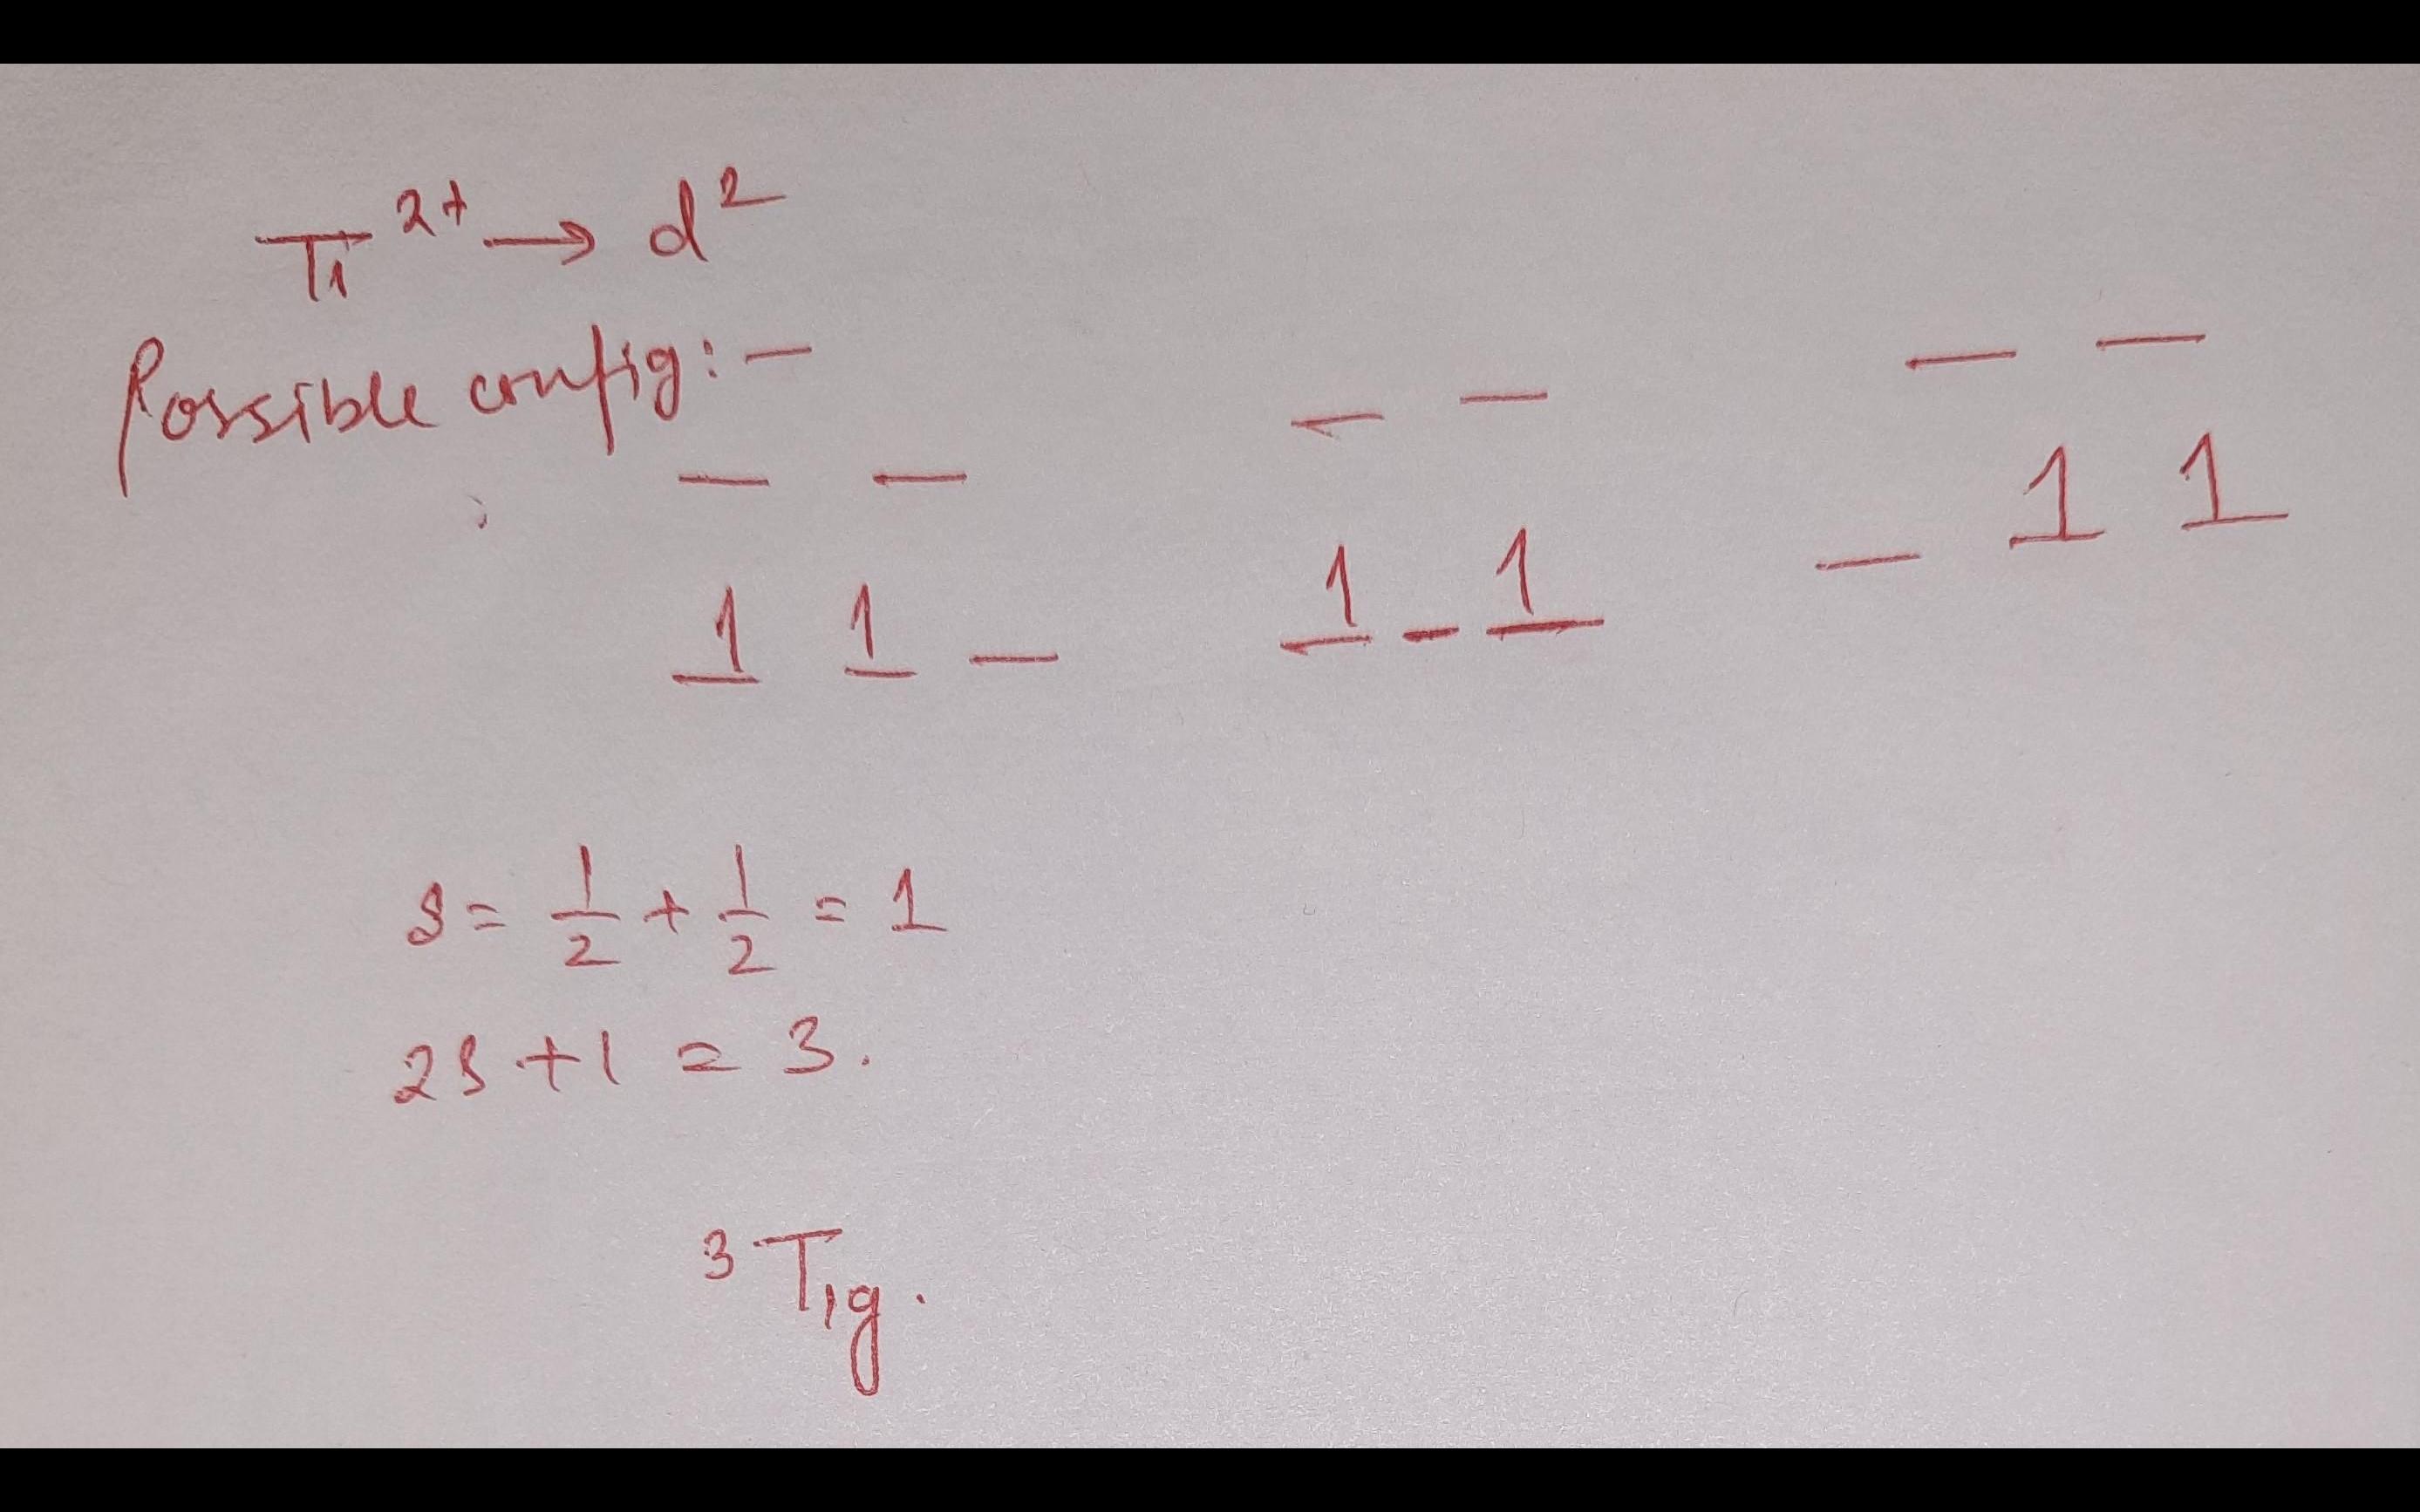 Ti²⁺ → d²
Possible config: —
— —
1 1 —
— —
1 - 1
— —
— 1 1
S = 1/2 + 1/2 = 1
2S + 1 = 3.
³T₁g.